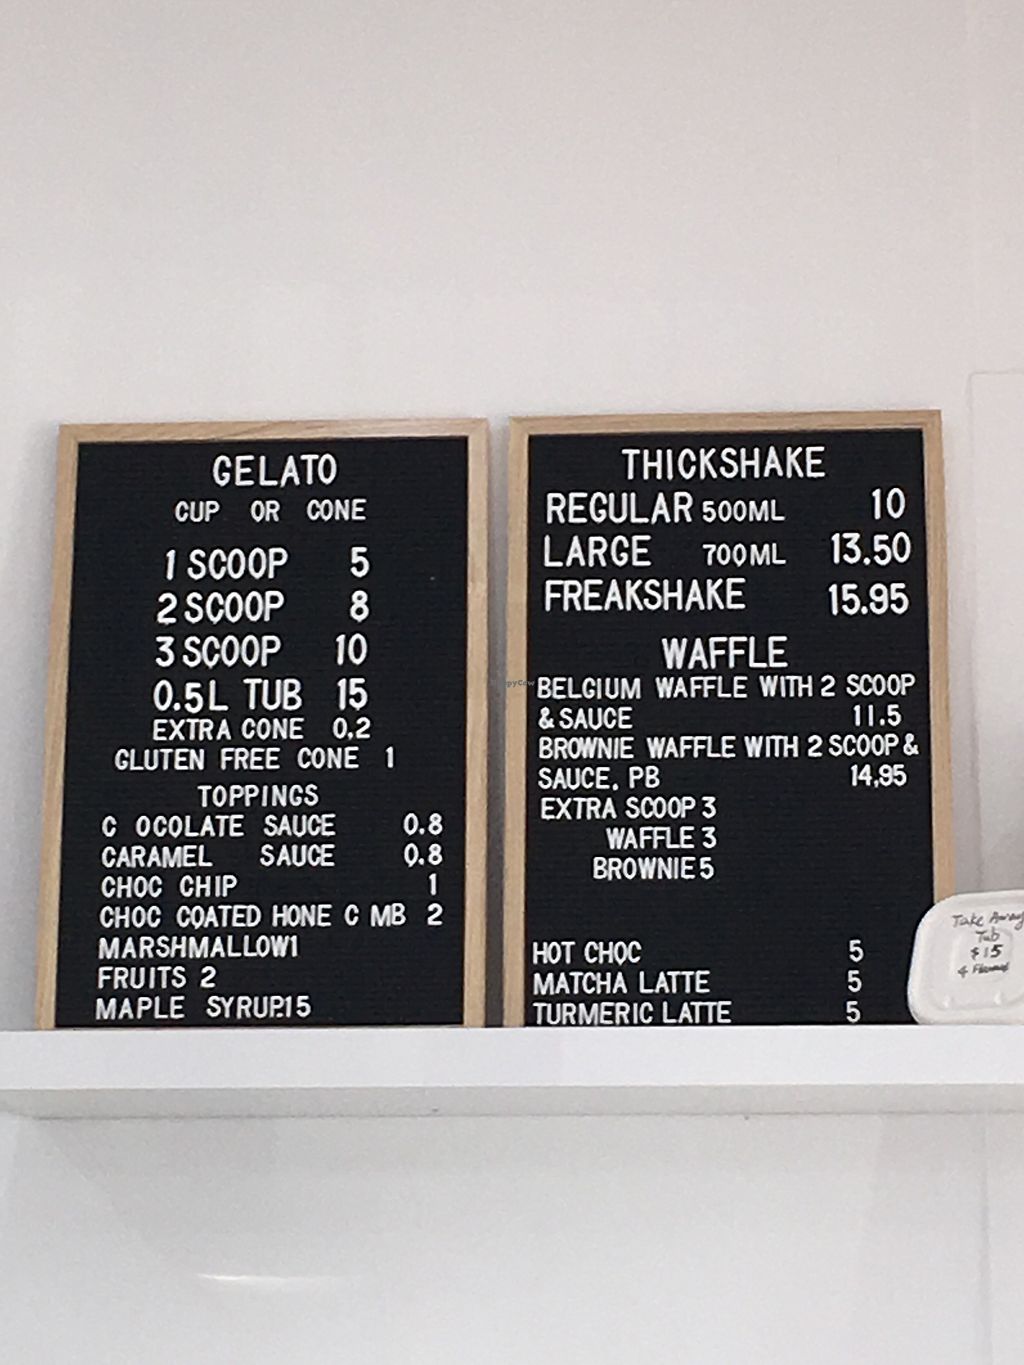 GELATO
CUP OR CONE
1 SCOOP 5
2 SCOOP 8
3 SCOOP 10
0.5L TUB 15
EXTRA CONE 0.2
GLUTEN FREE CONE 1
TOPPINGS
C OCOLATE SAUCE 0.8
CARAMEL SAUCE 0.8
CHOC CHIP 1
CHOC COATED HONE C MB 2
MARSHMALLOW1
FRUITS 2
MAPLE SYRUP.15
THICKSHAKE
REGULAR 500ML 10
LARGE 700ML 13.50
FREAKSHAKE 15.95
WAFFLE
BELGIUM WAFFLE WITH 2 SCOOP
& SAUCE 11.5
BROWNIE WAFFLE WITH 2 SCOOP &
SAUCE, PB 14,95
EXTRA SCOOP 3
WAFFLE 3
BROWNIE 5
HOT CHOC 5
MATCHA LATTE 5
TURMERIC LATTE 5
Take Away
Tub
$15
4